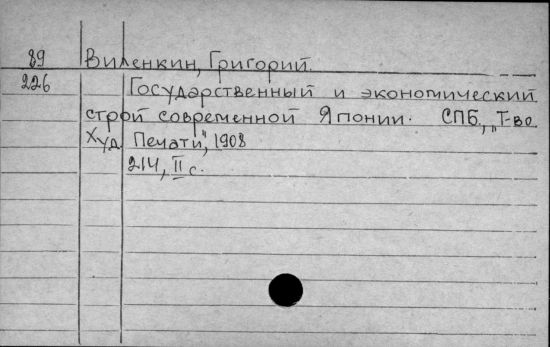 89 Виленкин, Григорий.
226 Государственный и экономический
строй современной Японии. СПБ., „Т-во
Худ. Печати", 1908
214, II с.